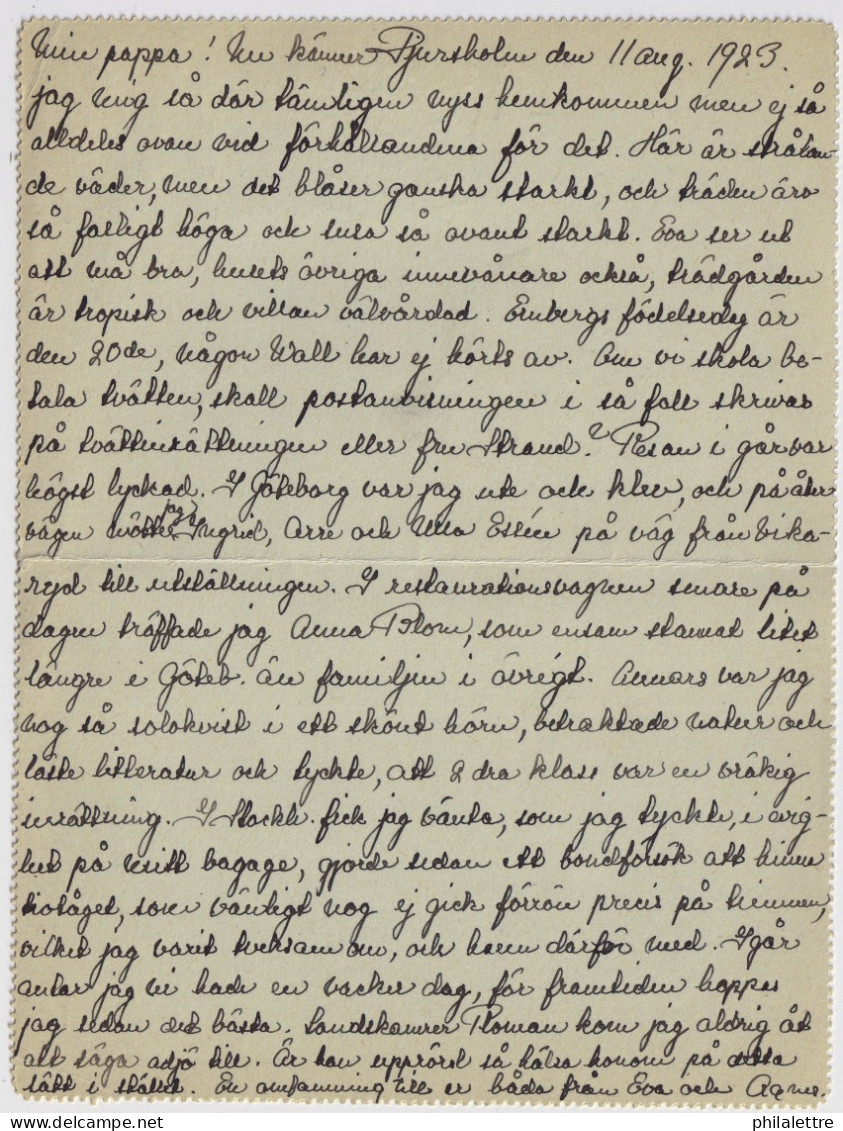 Min pappa! Nu känner Djursholm den 11 aug. 1923.
jag mig så där tämligen nyss hemkommen men ej så
alldeles ovan vid förhållandena för det. Här är strålan-
de väder, men det blåser ganska starkt, och träden äro
så farligt höga och susa så ovant starkt. Eva ser ut
att må bra, husets övriga innevånare också, trädgården
är tropisk och villan välvårdad. Enbergs födelsedag är
den 20de, någon Wall har ej hörts av. Om vi skola be-
tala tvätten, skall postanvisningen i så fall skrivas
på tvättinrättningen eller fru Strand? Resan i går var
högst lyckad. I Göteborg var jag ute och klev, och på åter
vägen mötte jag Ingrid, Arre och Ulla Essén på väg från Vika-
ryd till utställningen. I restaurationsvagnen senare på
dagen träffade jag Anna Blom, som ensam stannat litet
längre i Göteb. än familjen i övrigt. Annars var jag
nog så solokvist i ett skönt hörn, betraktade natur och
läste litteratur och tyckte, att 2dra klass var en vräkig
inrättning. I Stockh. fick jag vänta, som jag tyckte, i evig-
het på mitt bagage, gjorde sedan ett bondförsök att hinna
tiotåget, som vänligt nog ej gick förrän precis på timmen,
vilket jag varit tveksam om, och hann därför med. I går
antar jag vi hade en vacker dag, för framtiden hoppas
jag sedan det bästa. Landskamrer Ploman kom jag aldrig åt
att säga adjö till. Är han upprörd så hälsa honom på detta
sätt i stället. En omfamning till er båda från Eva och Agnes.
philalettre
delcampe.net